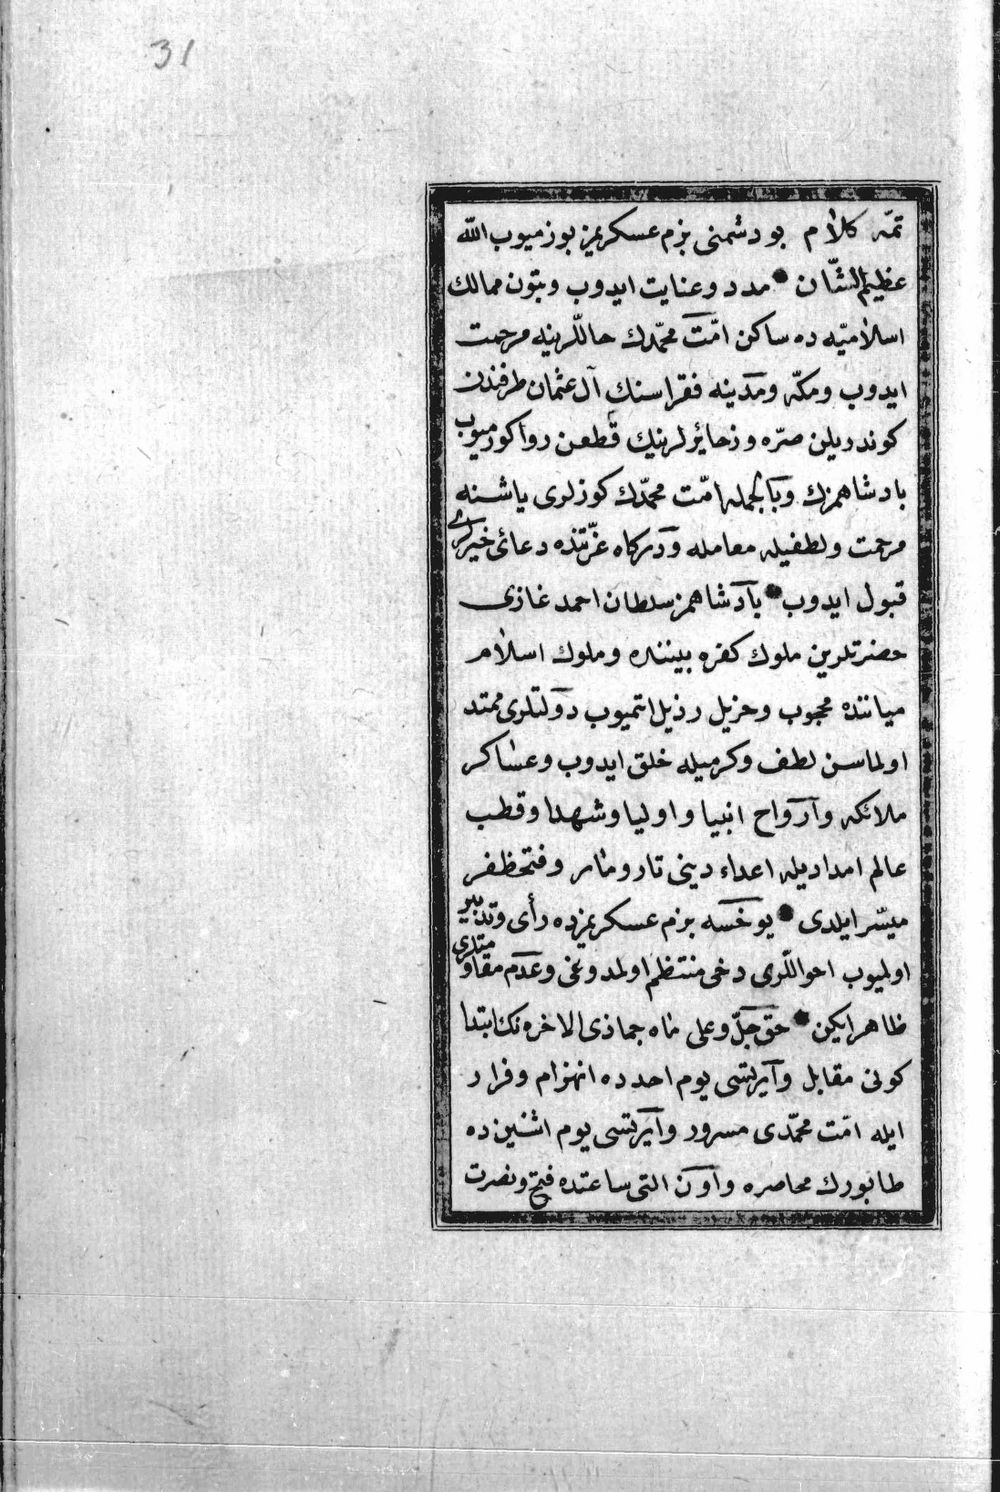 31
تمّه كلام بو دشمنى بزم عسكريمز بوزميوب الله
عظيم الشّان مدد وعنايت ايدوب وبتون ممالك
اسلاميّه ده ساكن امّت محمّدك حاللرينه مرحمت
ايدوب ومكّه ومدينه فقراسنك آل عثمان طرفندن
كوندريلن صرّه وزخائرلرينك قطعن روا كورميوب
پادشاهمزك وبالجمله امّت محمّدك كوزلرى ياشنه
مرحمت ولطفيله معامله ودركاه عزّتنده دعائ خيرلرى
قبول ايدوب پادشاهمز سلطان احمد غازى
حضرتلرين ملوك كفره بيننده وملوك اسلام
مياننده محجوب وحزيل رذيل اتميوب دولتلرى ممتد
اولماسن لطف وكرميله خلق ايدوب وعساكر
ملائكه وارواح انبيا واوليا وشهدا وقطب
عالم امداديله اعداء دينى تارومار وفتح ظفر
ميسّر ايلدى يوخسه بزم عسكريمزده رأى وتدبير
اولميوب احواللرى دخى منتظم اولمدوغى وعدم مقاومتلرى
ظاهر ايكن حق جلّ وعلى ماه جماذى الاخره نك ابتدا
كونى مقابل وايرتسى يوم احدده انهزام وفرار
ايله امّت محمّدى مسرور وايرتسى يوم اثنين ده
طابورك محاصره واون التى ساعتده فتح ونصرت